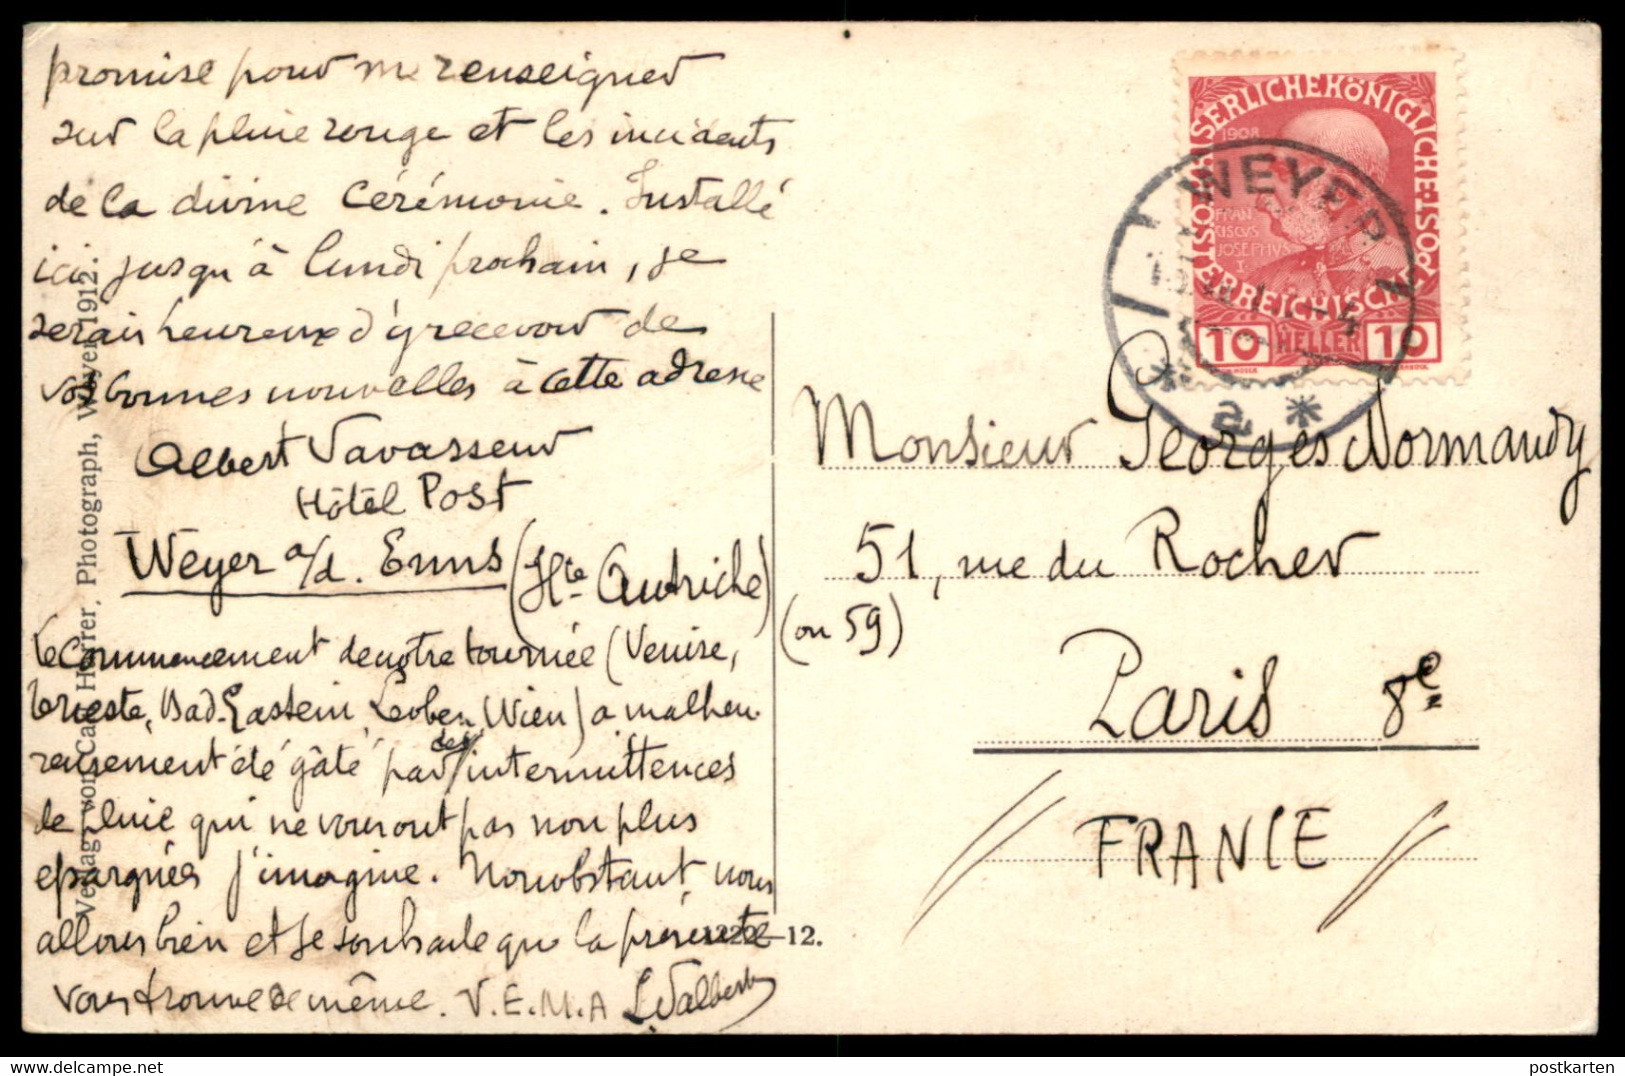 promise pour me renseigner
sur la pluie rouge et les incidents
de la divine cérémonie. Installé
ici jusqu'à lundi prochain, je
serais heureux d'y recevoir de
vos bonnes nouvelles à cette adresse
Albert Vavasseur
Hôtel Post
Weyer a/d. Enns (Hte Autriche)
Le commencement de notre tournée (Venise,
Trieste, Bad-Gastein, Leoben, Wien) a malheu-
reusement été gâté par des intermittences
de pluie qui ne vous ont pas non plus
épargnés j'imagine. Nonobstant, nous
allons bien et je souhaite que la présente
vous trouve de même. V.E.M.A
Verlag von Carl Harrer, Photograph, Weyer 1912.
12.
KAISERLICHE KÖNIGLICHE ÖSTERREICHISCHE POST
1908
FRAN
CISCUS
JOSEPHVS
I
10 HELLER 10
WEYER
a
Monsieur Georges Normandy
51, rue du Rocher
(ou 59)
Paris 8e
FRANCE
postkarten